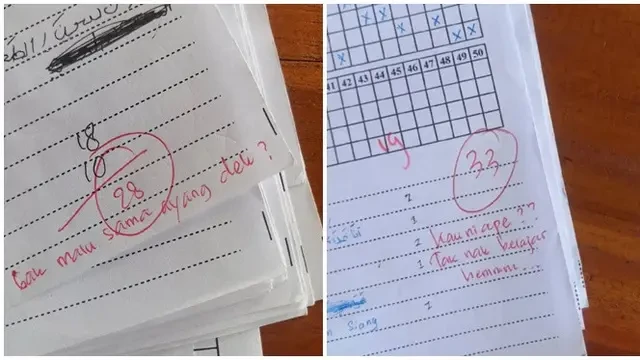 18
10
28
Gak malu sama ayang dek?
41 42 43 44 45 46 47 48 49 50
19
33
2
1
2 Kau ni ape??
1 Tak nak belajar
hemmm...
Siang 1